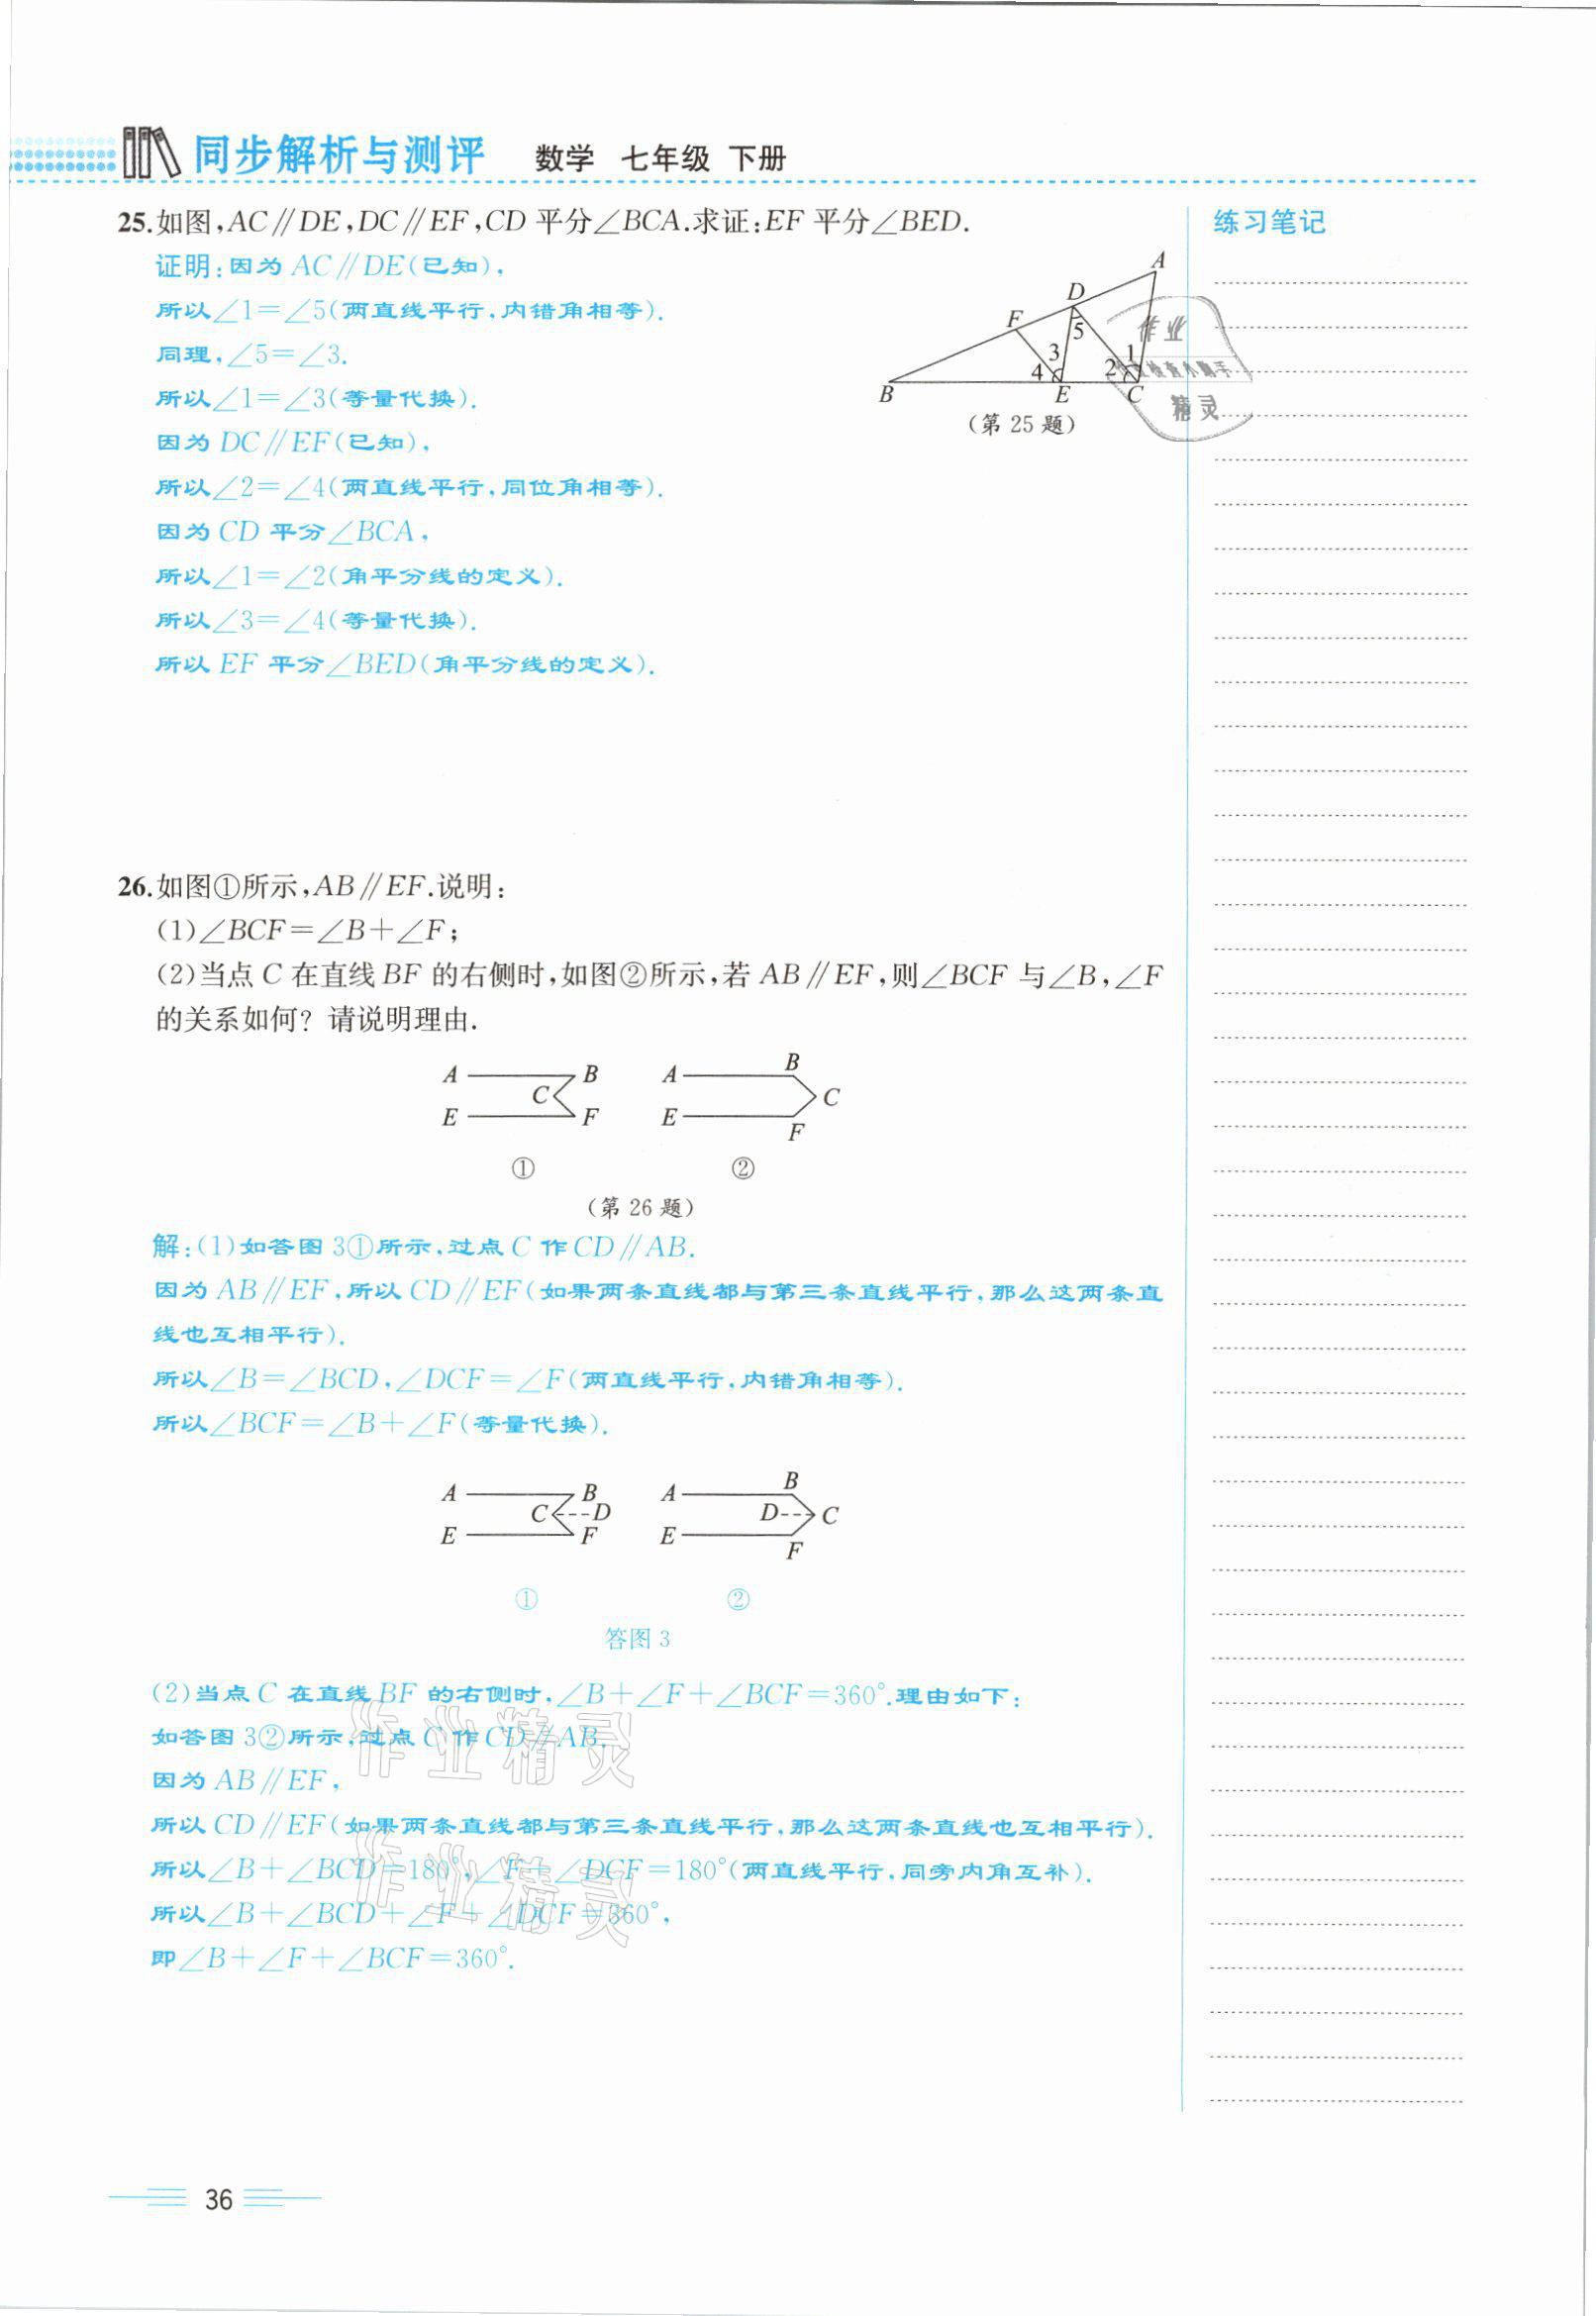 同步解析与测评 数学 七年级 下册
25.如图,AC∥DE,DC∥EF,CD 平分∠BCA.求证:EF 平分∠BED.
证明:因为 AC∥DE(已知),
所以∠1=∠5(两直线平行,内错角相等).
同理,∠5=∠3.
所以∠1=∠3(等量代换).
因为 DC∥EF(已知),
所以∠2=∠4(两直线平行,同位角相等).
因为 CD 平分∠BCA,
所以∠1=∠2(角平分线的定义).
所以∠3=∠4(等量代换).
所以 EF 平分∠BED(角平分线的定义).
A
D
F
5
3
1
4
2
B
E
C
(第 25 题)
练习笔记
作业
精灵
26.如图①所示,AB∥EF.说明:
(1)∠BCF=∠B+∠F;
(2)当点 C 在直线 BF 的右侧时,如图②所示,若 AB∥EF,则∠BCF 与∠B,∠F
的关系如何? 请说明理由.
A B A B
C C
E F E F
① ②
(第 26 题)
解:(1)如答图 3①所示,过点 C 作 CD∥AB.
因为 AB∥EF,所以 CD∥EF(如果两条直线都与第三条直线平行,那么这两条直
线也互相平行).
所以∠B=∠BCD,∠DCF=∠F(两直线平行,内错角相等).
所以∠BCF=∠B+∠F(等量代换).
A B A B
C D D C
E F E F
① ②
答图 3
(2)当点 C 在直线 BF 的右侧时,∠B+∠F+∠BCF=360°.理由如下:
如答图 3②所示,过点 C 作 CD∥AB.
因为 AB∥EF,
所以 CD∥EF(如果两条直线都与第三条直线平行,那么这两条直线也互相平行).
所以∠B+∠BCD=180°,∠F+∠DCF=180°(两直线平行,同旁内角互补).
所以∠B+∠BCD+∠F+∠DCF=360°,
即∠B+∠F+∠BCF=360°.
作业精灵
作业精灵
36